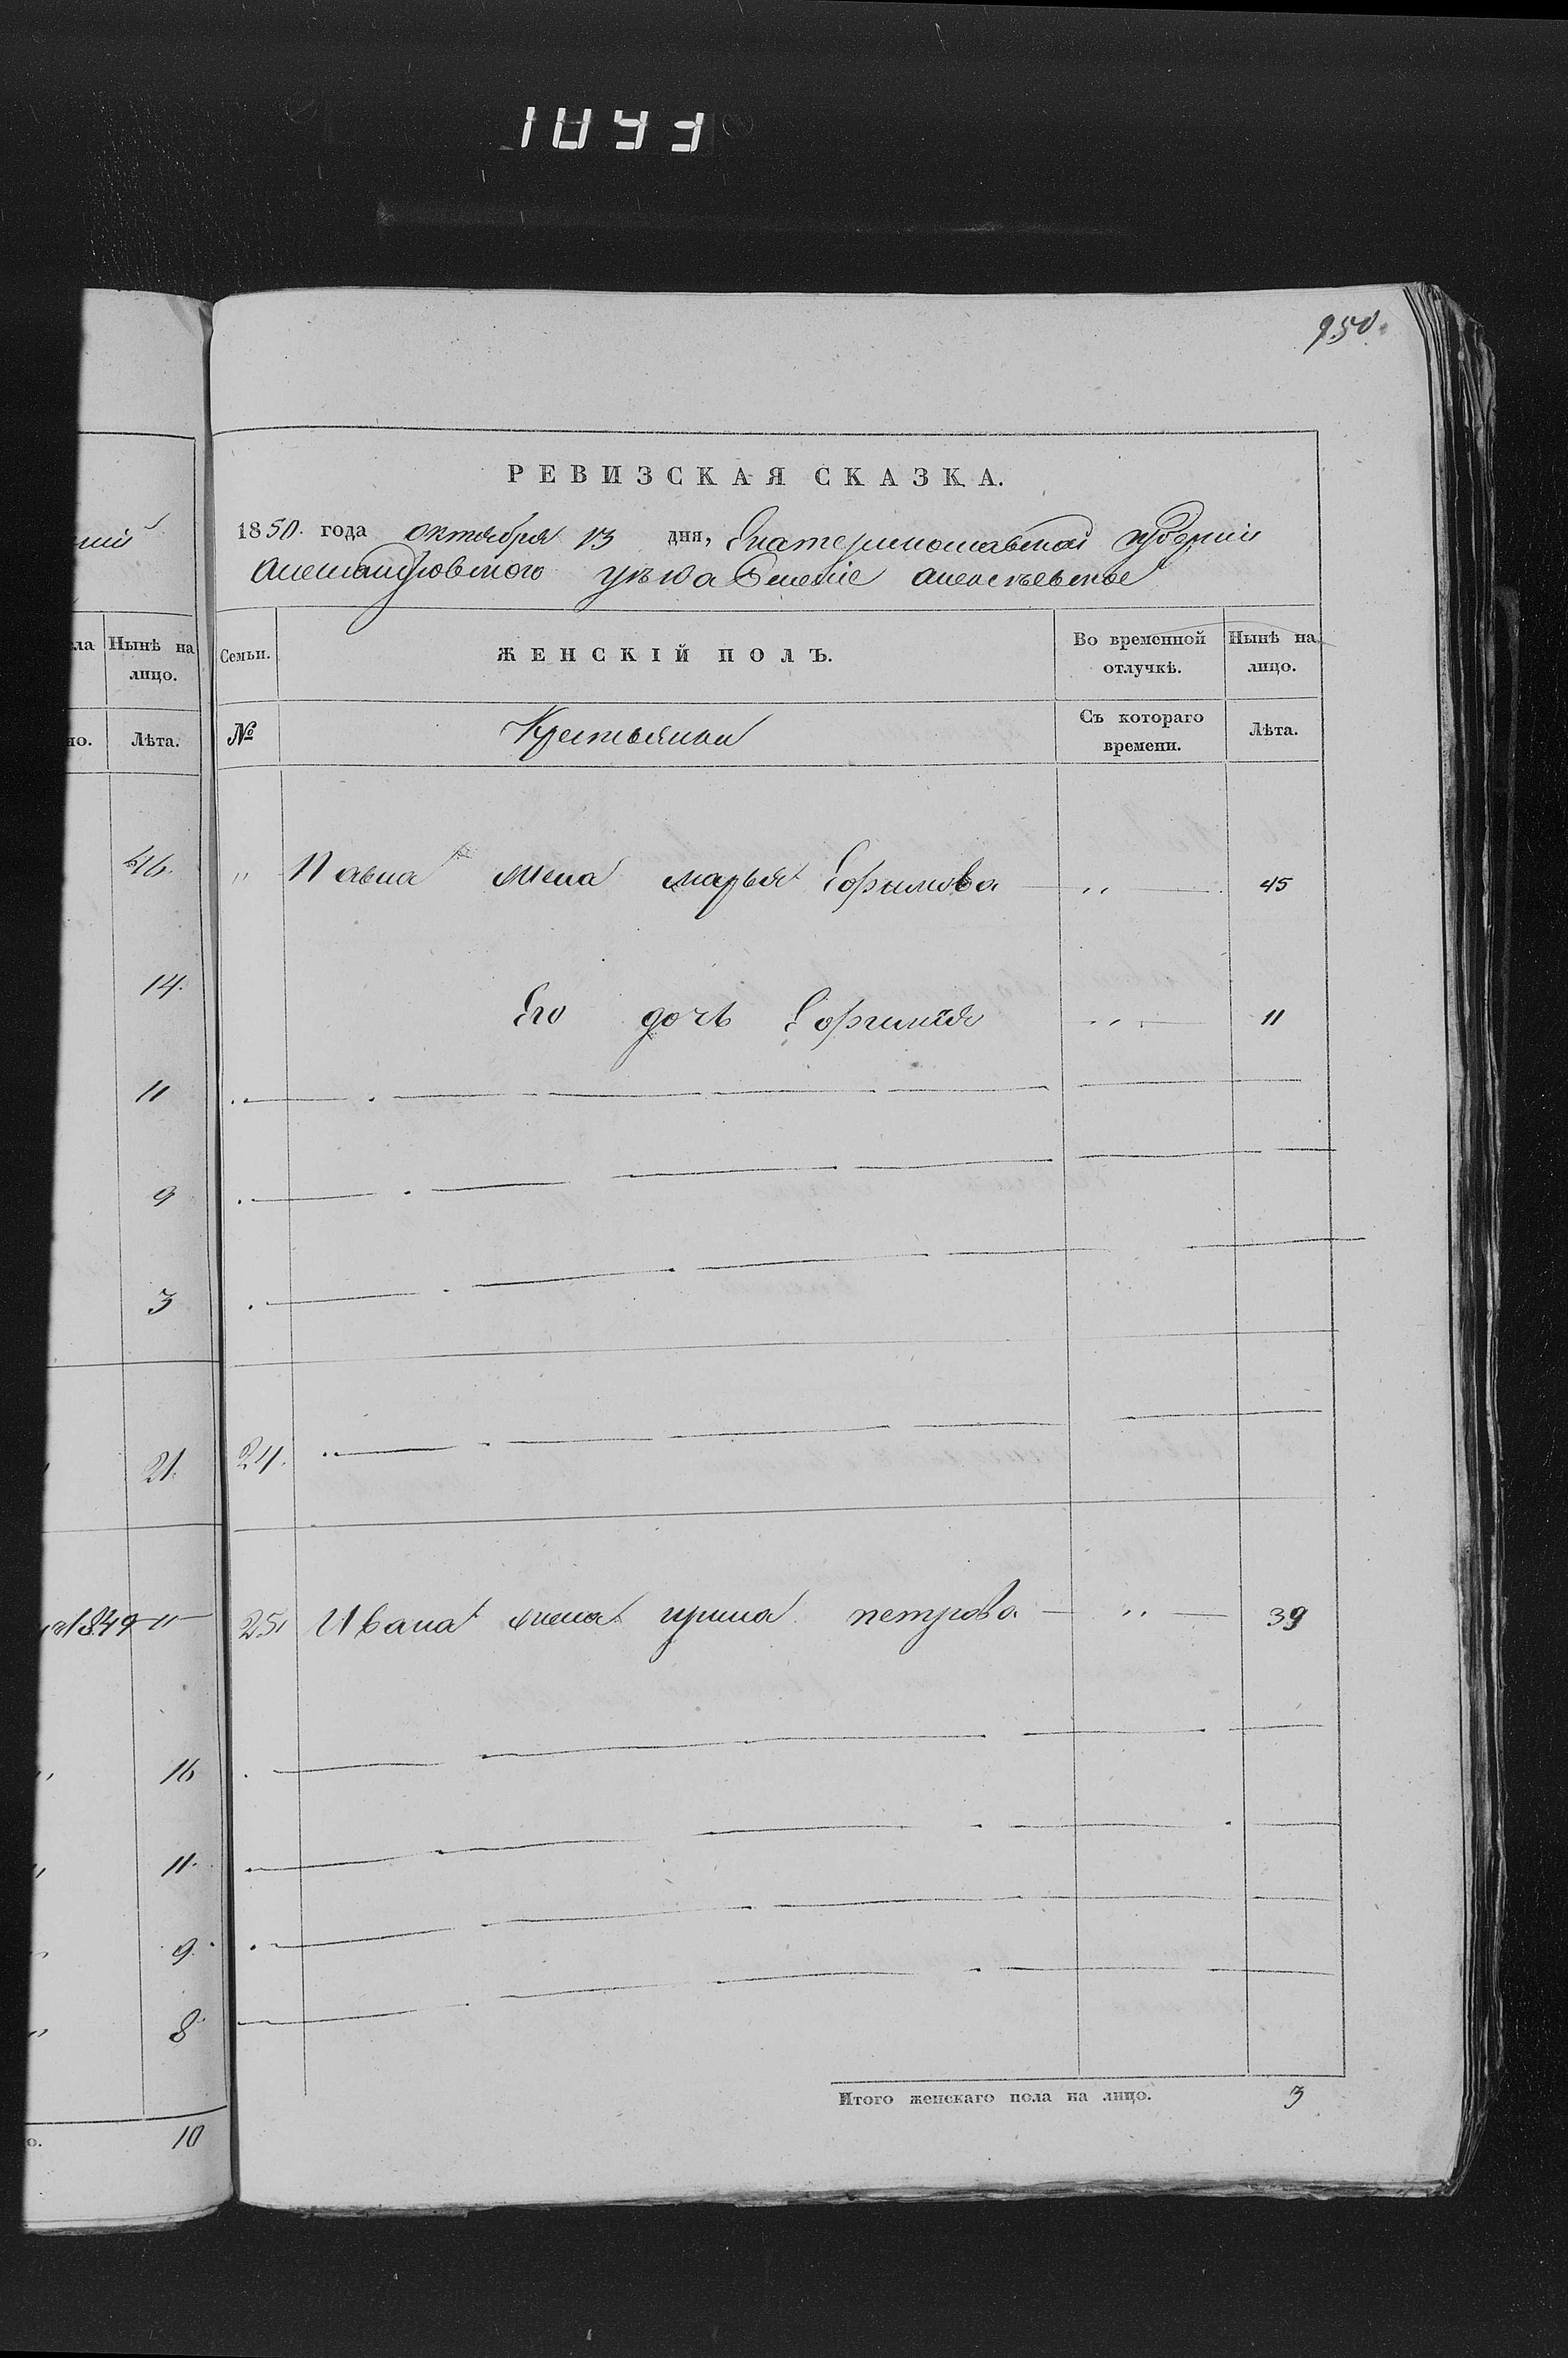 950.
РЕВИЗСКАЯ СКАЗКА.
1850. года октября 13 дня, Екатеринославской губерніи
Александровского уѣзда Селеніе алексѣевское
ла Нынѣ на лицо.
но. Лѣта.
46.
14.
11
9
3
21.
1849 "
16
11.
9.
8
о. 10
Семьи. ЖЕНСКІЙ ПОЛЪ. Во временной отлучкѣ. Нынѣ на лицо.
№ Крестьянки Съ котораго времени. Лѣта.
" Павла жена марья Ефимова " 45
Его дочь Ефимия " 11
24.
25. Ивана жена ирина петрова " 39
Итого женскаго пола на лицо. 3